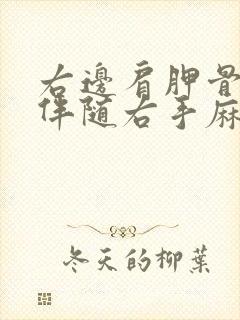 右邊肩胛骨
伴随右手麻
冬天的柳葉